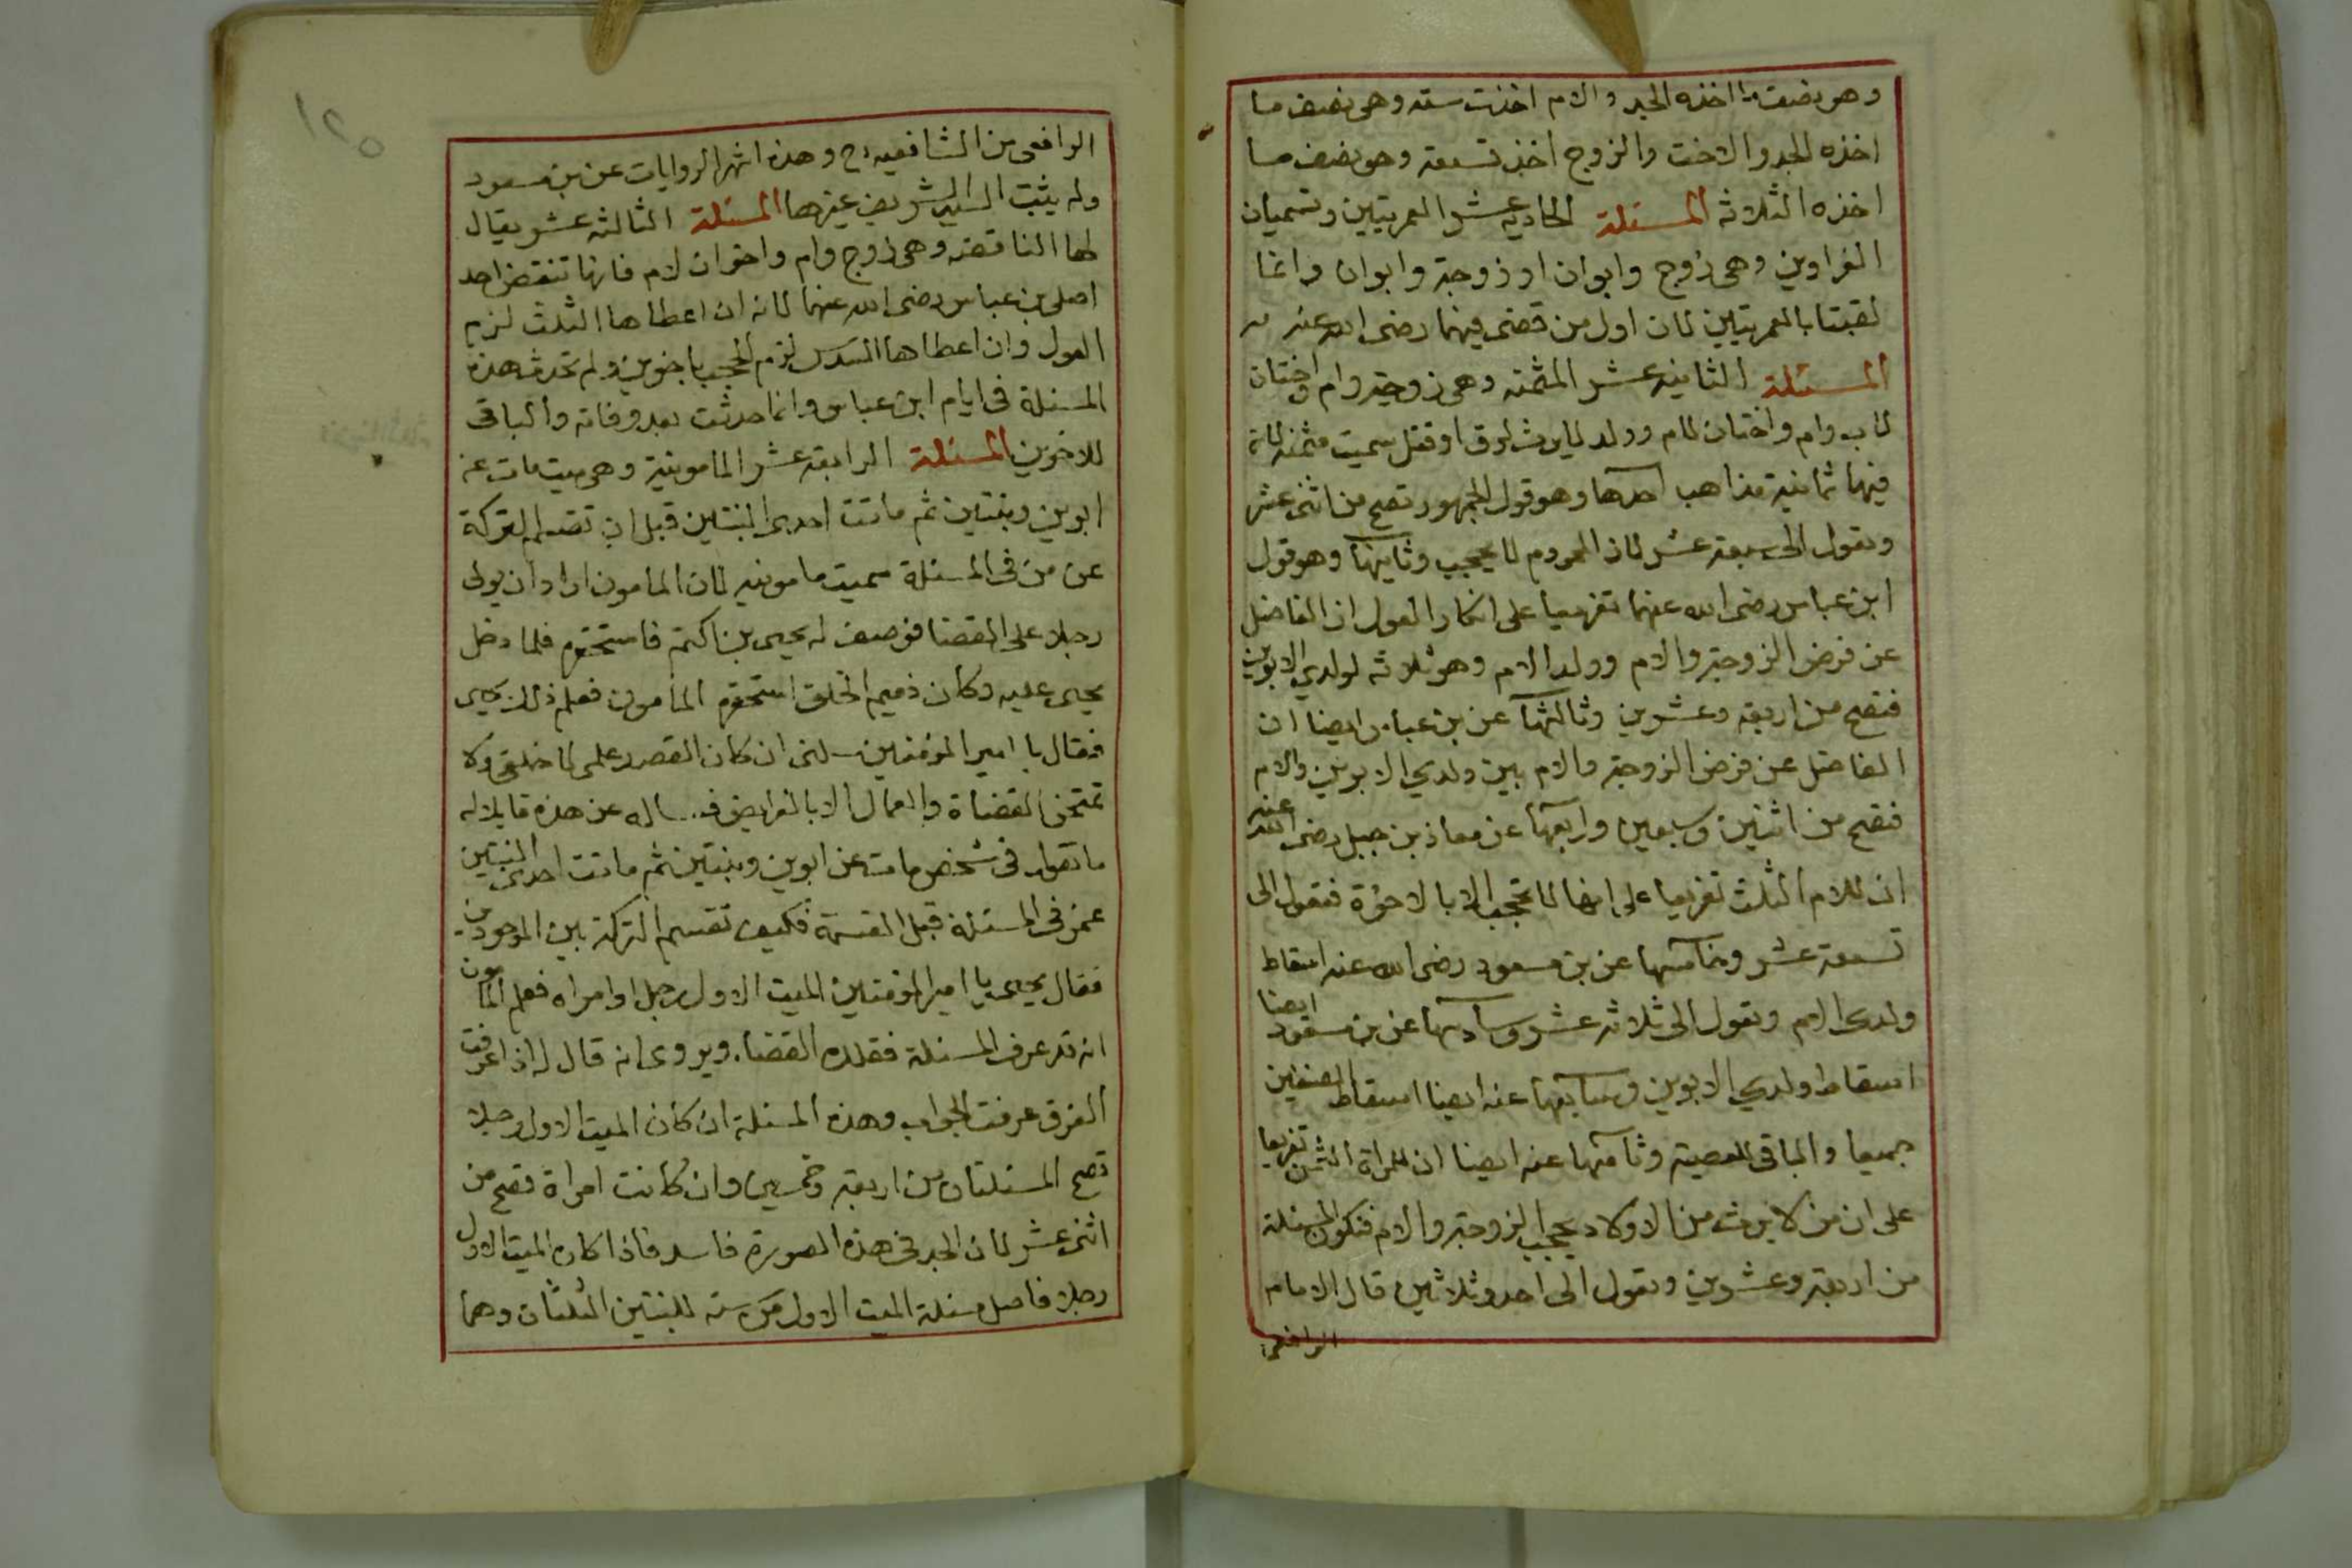 وهو نصف ما اخذه الجد والام اخذت سته وهى نصف ما
اخذه الجد والاخت والزوج اخذ تسعة وهو نصف ما
اخذه الثلاثه المسئلة الحاديه عشر العمريتين وتسميان
الغراوين وهى زوج وابوان او زوجة وابوان وانما
لقبتا بالعمريتين لان اول من قضى فيهما رضى الله عنه
المسئلة الثانيه عشر المثمنه وهى زوجة وام واختان
لاب وام واختان لام وولد لا يرث لرق او قتل سميت مثمنه لان
فيها ثمانية مذاهب احدها وهو قول الجمهور تصح من اثنى عشر
وتعول الى سبعة عشر لان المحروم لا يحجب وثانيها وهو قول
ابن عباس رضى الله عنهما تفريعا على انكار العول ان الفاضل
عن فرض الزوجة والام وولد الام وهو ثلاثه لولدي الابوين
فتصح من اربعة وعشرين وثالثها عن بن عباس ايضا ان
الفاضل عن فرض الزوجة والام بين ولدي الابوين والام
فتصح من اثنين وسبعين ورابعها عن معاذ بن جبل رضى الله عنه
ان للام الثلث تفريعا على انها لا تحجب الا بالاخوة فتعول الى
تسعة عشر وخامسها عن بن مسعود رضى الله عنه اسقاط
ولدى الام وتعول الى ثلاثه عشر وسادسها عن بن مسعود ايضا
اسقاط ولدي الابوين وسابعها عنه ايضا اسقاط الصنفين
جميعا والباقى للعصبة وثامنها عنه ايضا ان للمراة الثمن تفريعا
على ان من لا يرث من الاولاد يحجب الزوجة والام فتكون المسئلة
من اربعة وعشرين وتعول الى احد وثلاثين قال الامام
الرافعى
الرافعى من الشافعيه رح وهذه اشهر الروايات عن بن مسعود
ولم يثبت السيد الشريف غيرها المسئلة الثالثه عشر يقال
لها الناقضه وهى زوج وام واخوان لام فانها تنقض احد
اصلى بن عباس رضى الله عنهما لانه ان اعطاها الثلث لزم
العول وان اعطاها السدس لزم الحجب باخوين ولم تحدث هذه
المسئلة فى ايام ابن عباس وانما حدثت بعد وفاته والباقى
للاخوين المسئلة الرابعة عشر المامونية وهى ميت مات عن
ابوين وبنتين ثم ماتت احدى البنتين قبل ان تقسم التركة
عن من فى المسئلة سميت مامونيه لان المامون اراد ان يولى
رجلا على القضا فوصف له يحيى بن اكثم فاستحقره فلما دخل
يحيى عليه وكان ذميم الخلق استحقره المامون فعلم ذلك يحيى
فقال يا امير المؤمنين سلنى ان كان القصد علمى لا خلقى وكا
تمتحن القضاة والعمال الا بالفرايض فساله عن هذه قايلا له
ما تقول فى شخص مات عن ابوين وبنتين ثم ماتت احدى البنتين
عمن فى المسئلة قبل القسمة فكيف تقسيم التركة بين الموجودين
فقال يحيى يا امير المؤمنين الميت الاول رجل او امراه فعلم المامون
انه قد عرف المسئلة فقلده القضا. ويروى انه قال له اذا عرفت
الفرق عرفت الجواب وهذه المسئلة ان كان الميت الاول رجلا
تصح المسئلتان من اربعة وخمسين وان كانت امراة تصح من
اثنى عشر لان الجد فى هذه الصورة فاسد فاذا كان الميت الاول
رجلا فاصل مسئلة الميت الاول من سته للبنتين الثلثان وهما